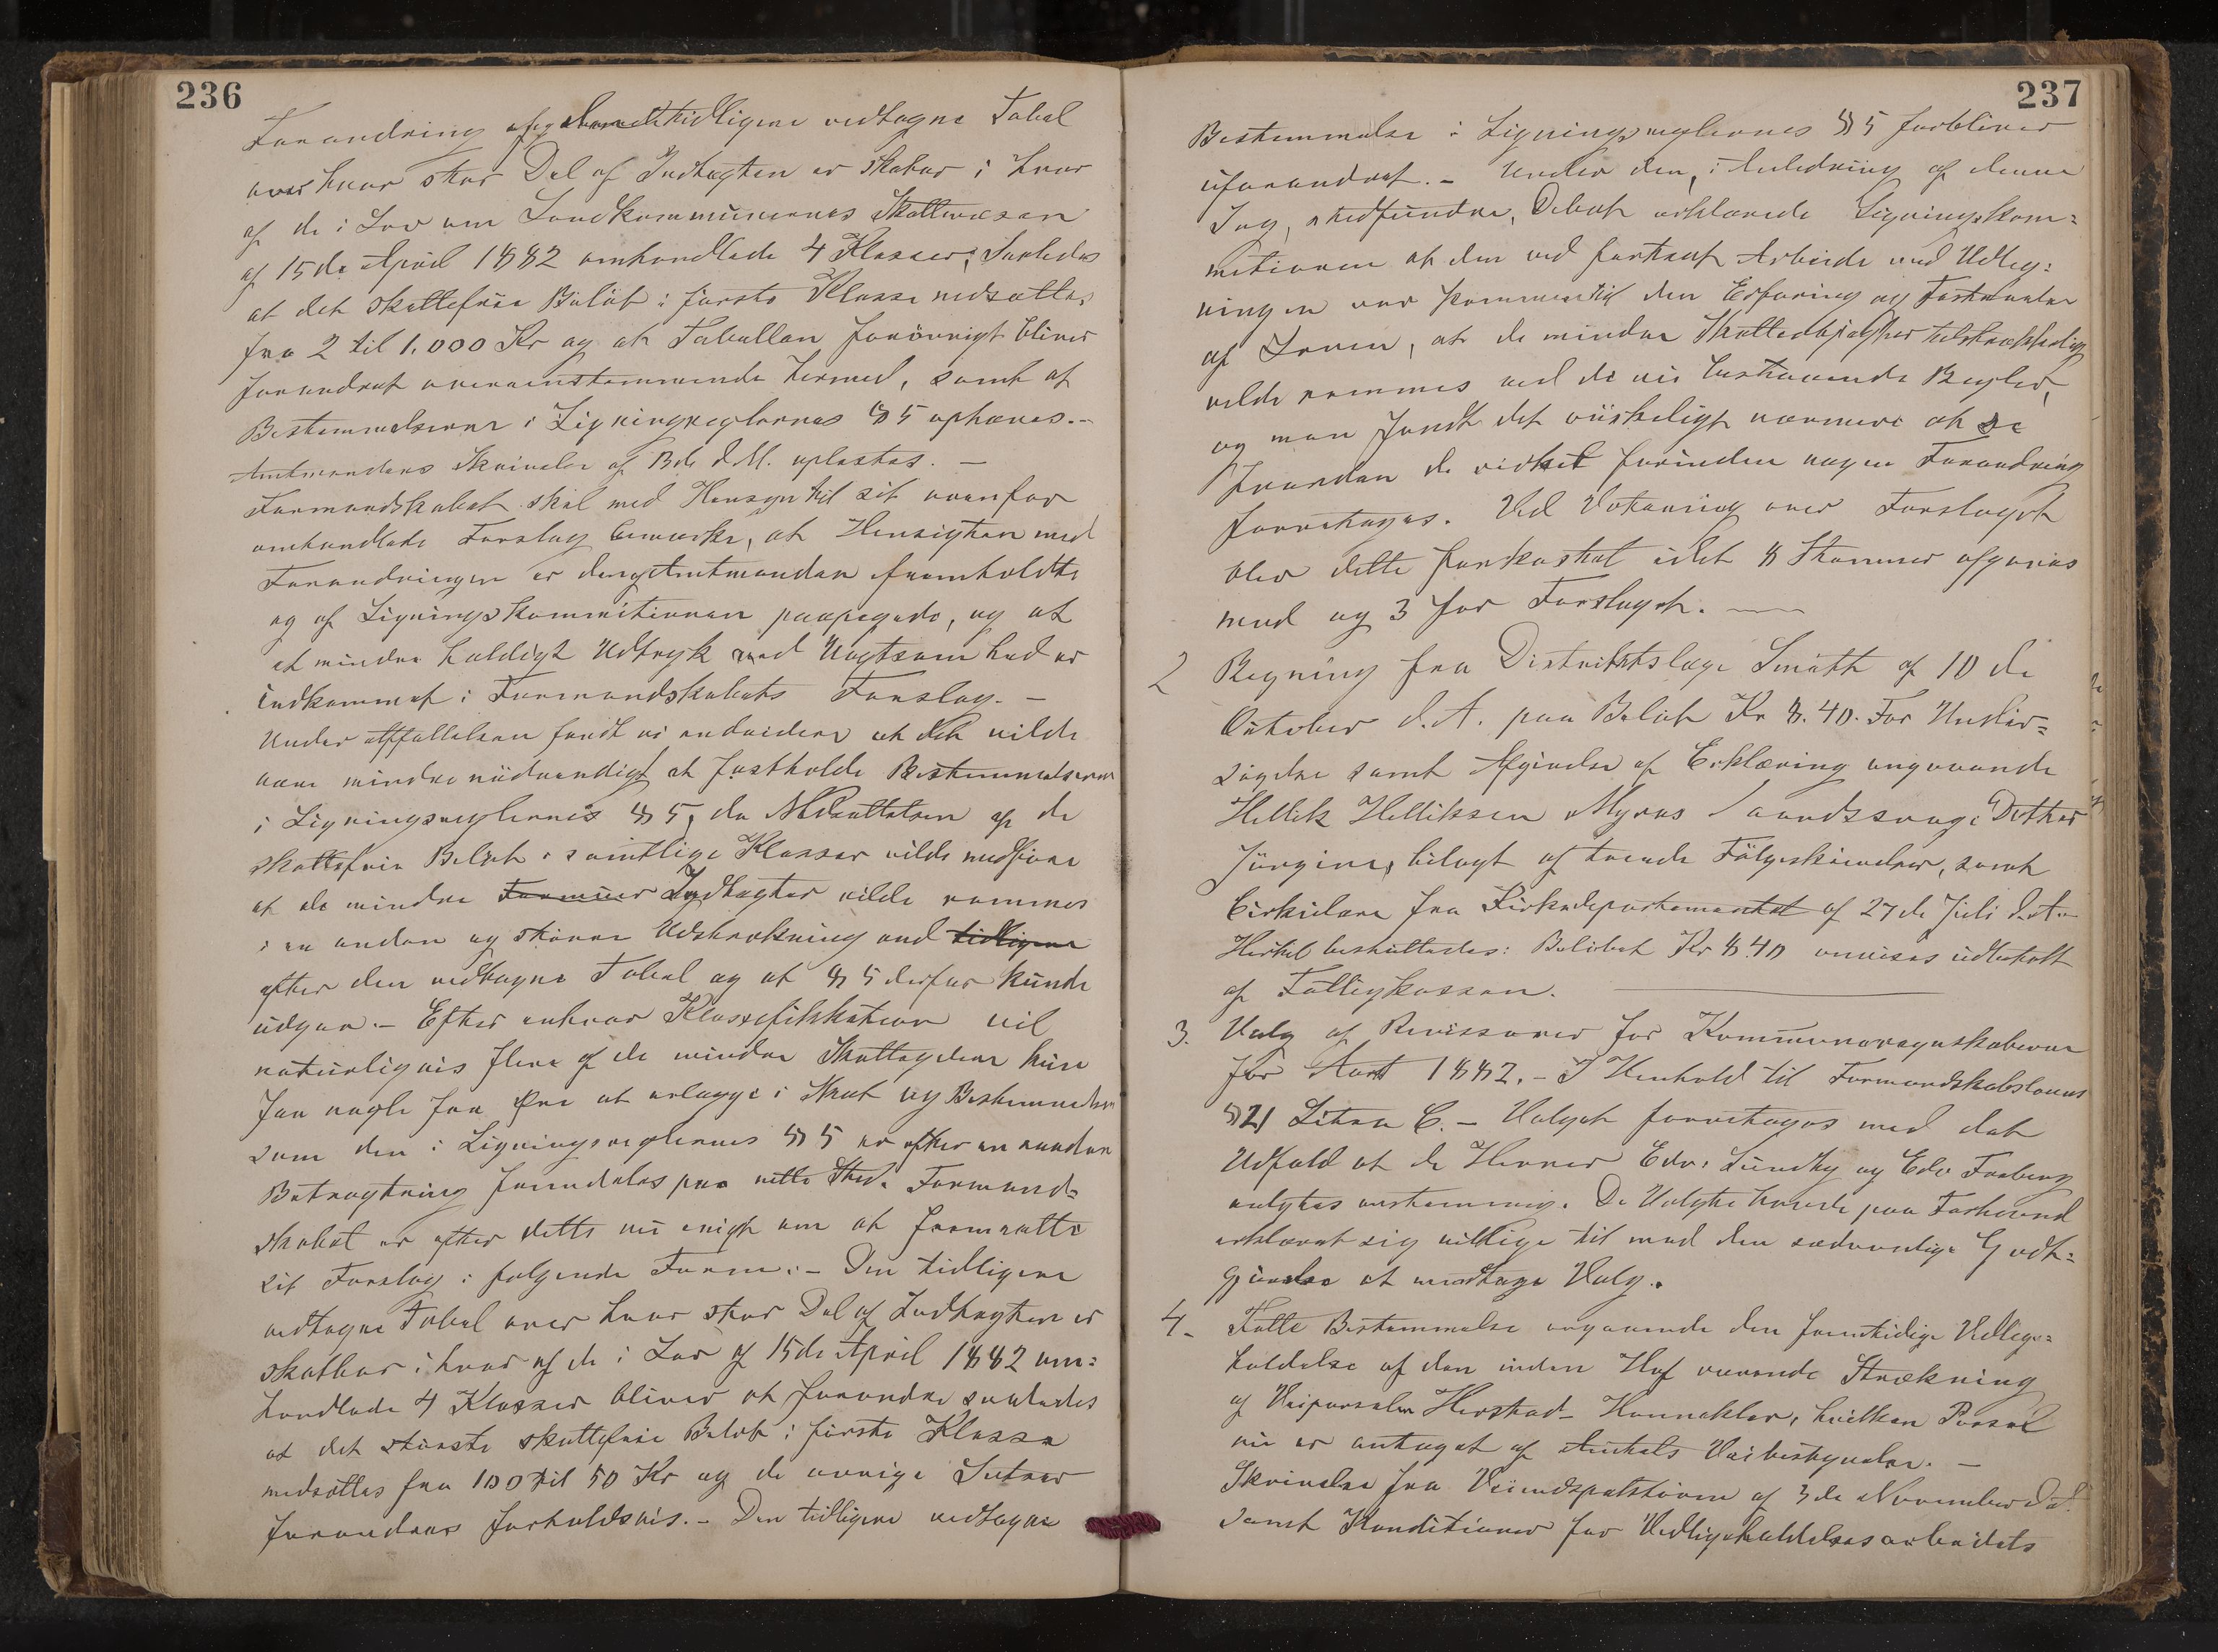 236
Forandring af den tidligere vedtagne Tabel
over hvor stor Del af Indtægten er skatbar i hver
af de i Lov om Landkommunernes Skattevæsen
af 15de April 1882 omhandlede 4 Klasser; Saaledes
at det skattefrie Beløb i første Klasse nedsættes
fra 2 til 1.000 Kr og at Tabellen forøvrigt bliver
forandret overensstemmende hermed, samt at
Bestemmelserne i Ligningsreglernes § 5 ophæves.-
Amtmandens Skrivelse af d.M. oplæstes. -
Formandskabet skal med Hensyn til sit ovenfor
omhandlede Forslag bemærke, at Hensigten med
Forandringen er den af Amtmanden fremholdte
og af Ligningskommitionen paapegede, og at
et mindre heldigt Udtryk ved Uagtsomhed er
indkommet i Formandskabets Forslag. -
Under Affattelsen fandt vi endvidere at det vilde
være mindre nødvendigt at fastholde Bestemmelserne
i Ligningsreglernes § 5, da Nedsættelsen af de
skattefrie Beløb i samtlige Klasser vilde medføre
at de mindre Formuer Indtægter vilde rammes
i en anden og større Udstrækning end tidligere
efter den vedtagne Tabel og at § 5 derfor kunde
udgaa. - Efter enhver Klassefikation vil
naturligvis flere af de mindre Skatteydere kun
faa nogle faa Øre at erlægge i Skat og Bestemmelsen
som den i Ligningsreglernes § 5 er efter en anden
Betragtning forudeles paa rette Sted. Formand-
skabet er efter dette nu enigt om at fremsætte
sit Forslag i følgende Form: - Den tidligere
vedtagne Tabel over hvor stor Del af Indtægten er
skatbar i hver af de i Lov af 15de April 1882 om-
handlede 4 Klasser bliver at forandre saaledes
at det største skattefrie Beløb i første Klasse
nedsættes fra 100 til 50 Kr og de øvrige Satser
forandres forholdsvis. - Den tidligere vedtagne
237
Bestemmelse i Ligningsreglernes § 5 forbliver
uforandret. - Under den, i Anledning af denne
Sag, stedfundne, Debat erklærede Ligningskom-
mitionen at den ved fortsat Arbeide med Udlig-
ningen var kommen til den Erfaring og Forstaaelse
af Loven, at de mindre Skatteobjekter tilstrækkelig
vilde rammes ved de nu bestaaende Regler,
og man fandt det ønskeligt nærmere at se
hvordan de virket forinden nogen Forandring
foretages. Ved Votering over Forslaget
blev dette forkastet idet 8 Stemmer afgaves
mod og 3 for Forslaget. -
2 Regning fra Distriktslæge Smith af 10de
Oktober d.A. paa Beløb Kr 8.40. For Under-
søgelse samt Afgivelse af Erklæring angaaende
Hellik Helliksen Myras sindssyge Datter
Jørgine, bilagt af tvende Følgeskrivelser, samt
Cirkulære fra Kirkedepartementet af 27de Juli d.A.
Hertil besluttedes: Beløbet Kr 8.40 anvises udbetalt
af Fattigkassen.
3. Valg af Revisorer for Kommuneregnskaberne
for Aaret 1882. - I Henhold til Formandskabslovens
§ 21 Litra C. - Valget foretages med det
Udfald at de Herrer Edv: Lundby og Edv Forberg
valgtes enstemmig. De Valgte havde paa Forhaand
erklæret sig villige til mod den sædvanlige Godt-
gjørelse at modtage Valg.
4. Fatte Bestemmelse angaaende den fremtidige Vedlige-
holdelse af den inden Hof værende Strækning
af Veiparselen Herstad - Hanneklev, hvilken Parsel
nu er antaget af Amtets Veibestyrelse. -
Skrivelse fra Veiinspektøren af 3de November d.A.
samt Konditioner for Vedligeholdelsesarbeidets